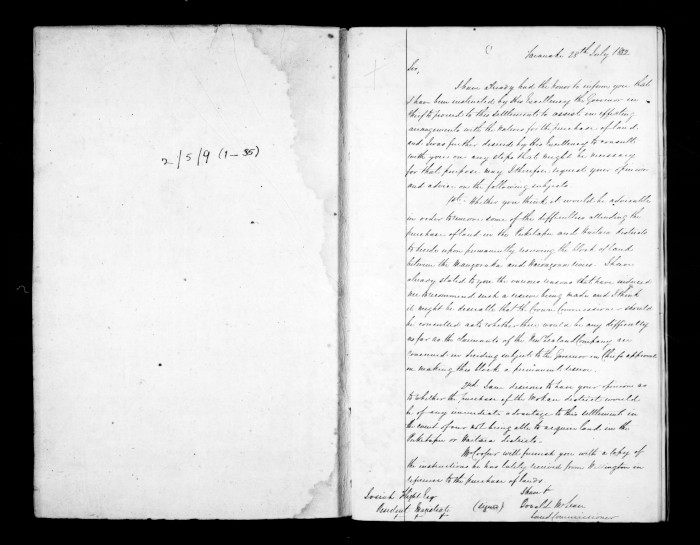 2/5/9 (1-35)
Taranaki 28th July 1852
Sir,
I have already had the honor to inform you that
I have been instructed by His Excellency the Governor in
Chief to proceed to this settlement to assist in effecting
arrangements with the natives for the purchase of land
and I was further desired by His Excellency to consult
with you on any steps that might be necessary
for that purpose may I therefore request your opinion
and advice on the following subjects
1st. Whether you think it would be advisable
in order to remove some of the difficulties attending the
purchase of land in the Puketapu and Waitara districts
to decide upon permanently reserving the block of land
between the Mangoraka and Waiongona rivers. I have
already stated to you the various reasons that have induced
me to recommend such a reserve being made and I think
it might be desirable that the Crown Commissioner should
be consulted as to whether there would be any difficulty
as far as the Servants of the New Zealand Company are
concerned in deciding subject to the Governor in Chief's approval
on making this block a permanent reserve.
2nd. I am desirous to have your opinion as
to whether the purchase of the Mokau district would
be of any immediate advantage to this settlement in
the event of our not being able to acquire land in the
Puketapu or Waitara districts.
Mr Cooper will furnish you with a copy of
the instructions he has lately received from Wellington in
reference to the purchase of lands.
I have &c
Josiah Flight Esq
(signed) Donald McLean
Resident Magistrate
Land Commissioner